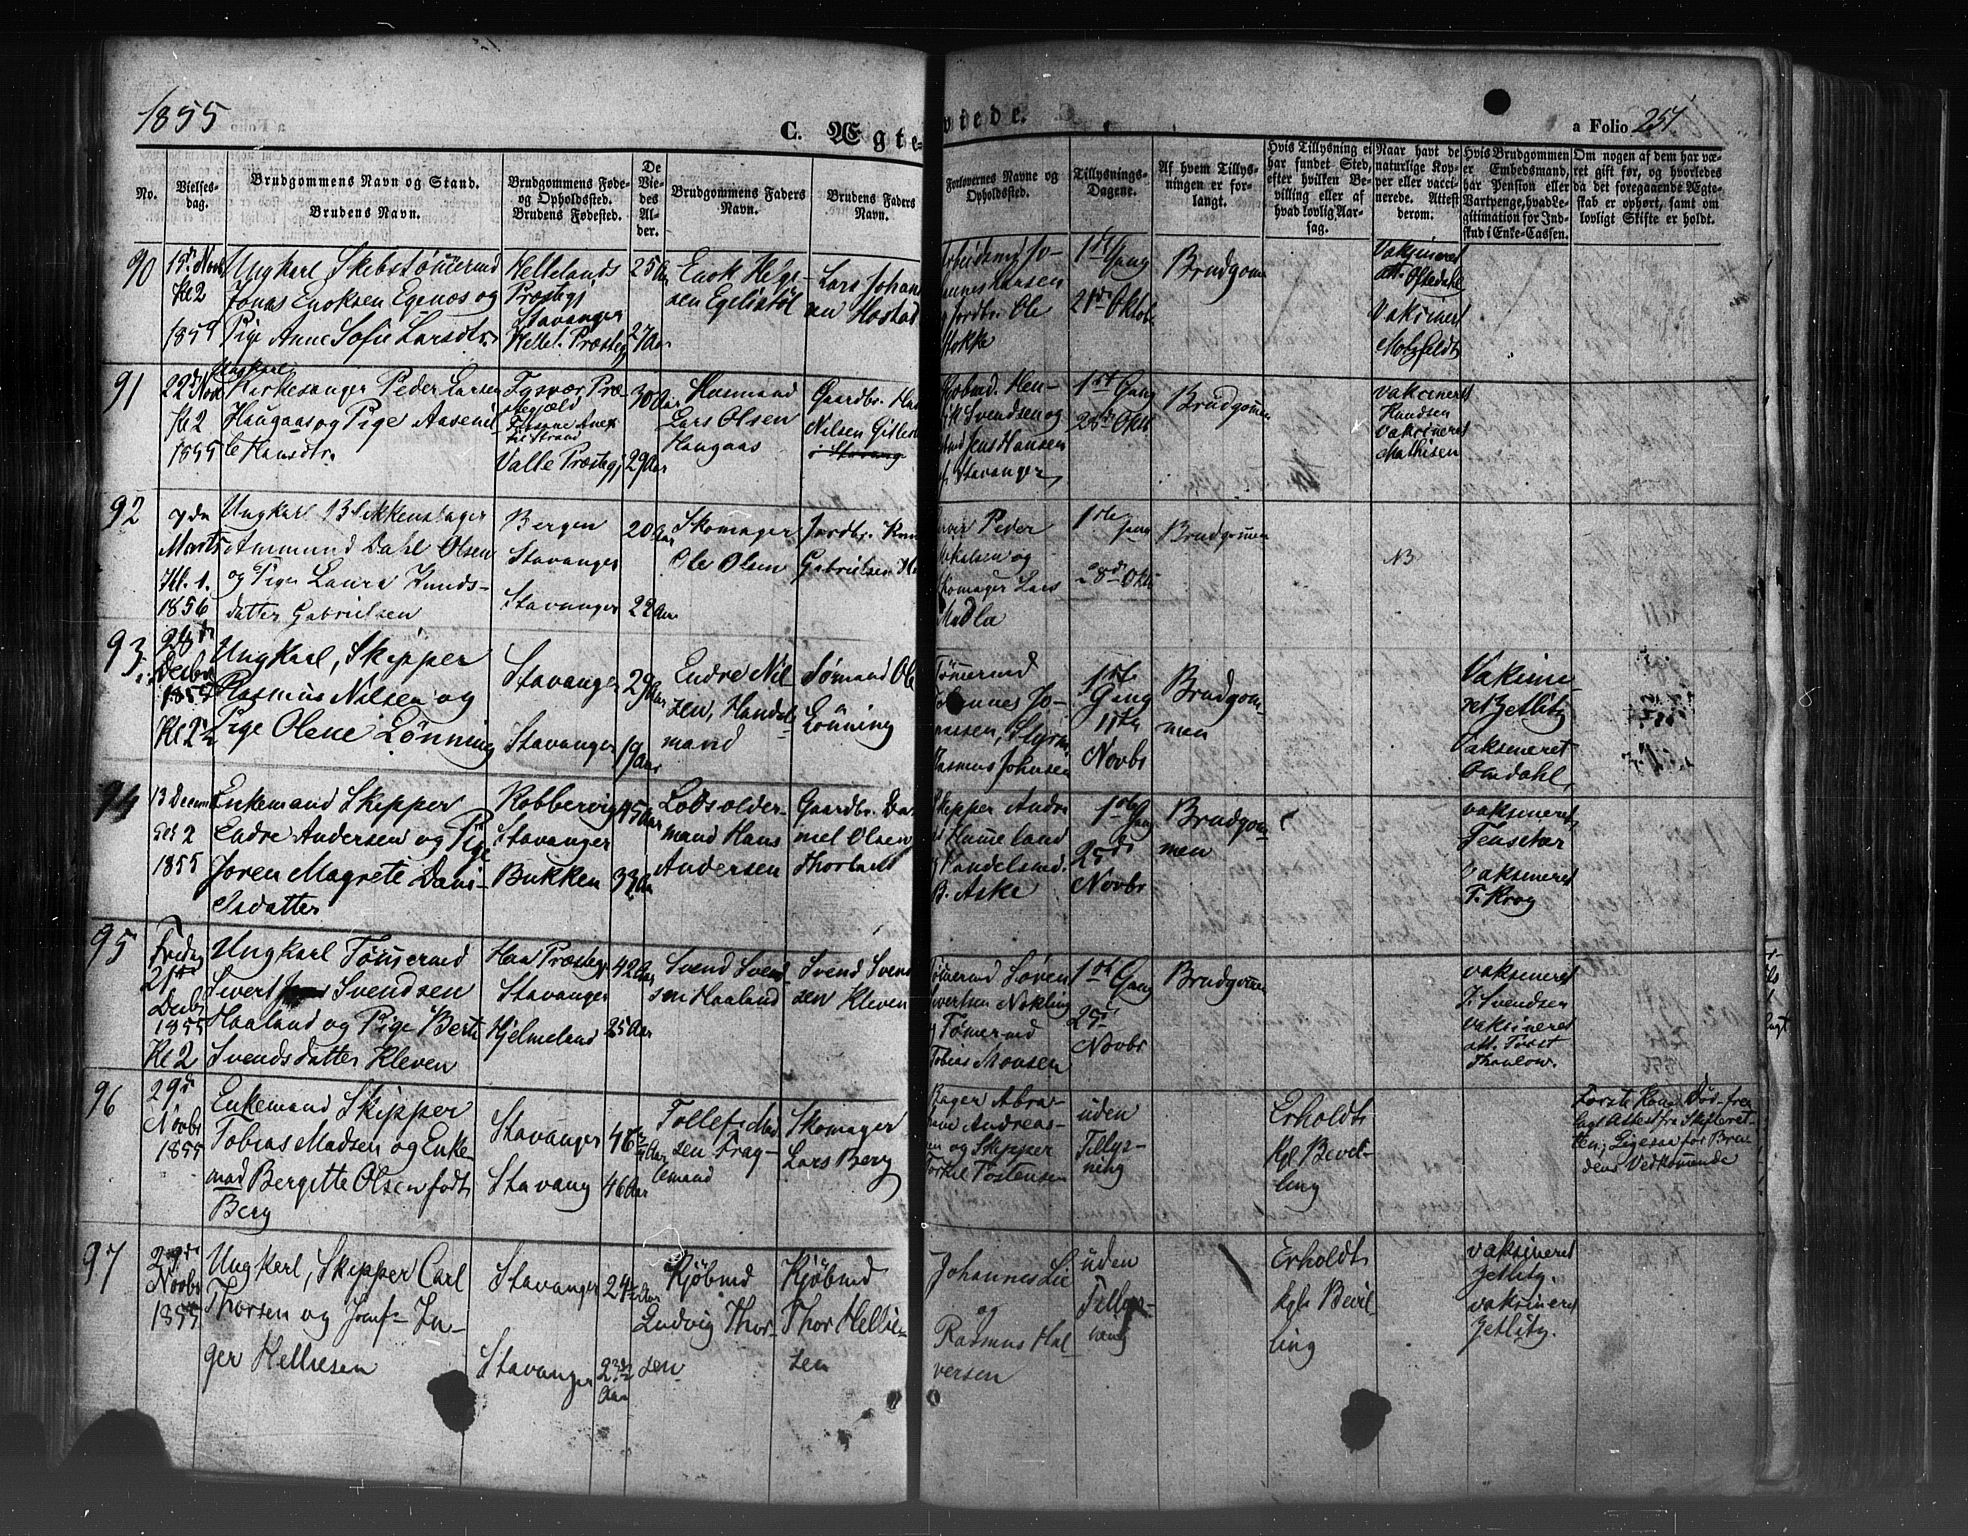 1855
C. Ægteviede.
a Folio 257
No.
Vielses-
dag.
Brudgommens Navn og Stand.
Brudens Navn.
Brudgommens Føde-
og Opholdssted.
Brudens Fødested.
De
Vie-
des
Al-
der.
Brudgommens Faders
Navn.
Brudens Faders
Navn.
Forlovernes Navne og
Opholdssted.
Tillysnings-
Dagene.
Af hvem Tillys-
ningen er for-
langt.
Hvis Tillysning ei
har fundet Sted,
efter hvilken Be-
villing eller af
hvad lovlig Aar-
sag.
Naar havt de
naturlige Kop-
per eller vacci-
nerede. Attest
derom.
Hvis Brudgommen
er Embedsmand,
har Pension eller
Vartpenge, hvad Le-
gitimation for Ind-
skud i Enke-Cassen.
Om nogen af dem har væ-
ret gift før, og hvorledes
da det foregaaende Ægte-
skab er ophørt, samt om
lovligt Skifte er holdt.
90
Kl 2
Ungkarl Skibstømermd
Jonas Enoksen Egenæs og
Pige Anne Sofie Larsdtr.
Hellelands
Præstegj
Stavanger
Hellel. Præstegj
25 Aar
27 Aar
Enok Helge-
sen Egelistøl
Lars Johan
sen Hostad
Arbeidsmd Jo-
hannes Larsen
og Jordbr. Ole
Stokke
1ste Gang
21de Oktob.
Brudgom
Vaksineret
att. Oftedahl
Vaksineret
Motzfeldt
91
22de Nov
Kl 2
1855
Ungkarl
Kirkesanger Peder Larsen
Haugaas og Pige Aasenil-
le Hansdtr.
Tysvær Præ-
stegjeld
til Strand
Valle Præstegj
30 Aar
29 Aar
Husmand
Lars Olsen
Haugaas
Gaardbr. Ha
Nilsen
i Stavang
Kjøbmd. Hen-
rik Svendsen og
Jens Hansen
af Stavanger
1ste Gang
28de Okt.
Brudgommen
vaksineret
Knudsen
vaksineret
Mathisen
92
7de
Marts
Kl. 1.
1856
Ungkarl Blikkenslager
Ammund Dahl Olsen
og Pige Laura Knuds-
datter Gabrielsen
Bergen
Stavanger
Stavanger
20 Aar
22 Aar
Skomager
Ole Olsen
Jordbr. Knu
Gabrielsen
Peder
Mikelsen og
Skomager Lars
Madla
1ste
Gang
28de Okt
Brudgommen
NB
93.
28de
Decbr
1855
Kl 2½
Ungkarl, Skipper
Rasmus Nilsen og
Pige Olene Lønning
Stavanger
Stavanger
29 Aar
19 Aar
Endre Nil-
sen, Handel-
mand
Sømand Ole
Lønning
Tømermd
Johannes Jo-
nassen, Styrm.
Rasmus Johnsen
1ste
Gang
11te
Novbr
Brudgom-
men
Vaksine-
ret Zetlitz
Vaksineret
Omdahl,
94
13 Decem
Kl 2
1855
Enkemand Skipper
Endre Andersen og Pige
Joren Magrete Dani-
elsdatter
Kobbervig
Stavanger
Bukken
45 Aar
33 Aar
Lodsolder-
mand Hans
Andersen
Gaardbr. Da-
niel Olsen
Skipper Andre
as Hummeland
og Handelsmd.
B. Aske
1ste Gang
25de
Novbr
Brudgom-
men
vaksineret,
vaksineret
T. Krog
95
Fredag
21de
Decbr
1855
Kl 2
Ungkarl Tømermd
Sivert Svendsen
Haaland og Pige Berte
Svendsdatter Kleven
Haa Præstegj
Stavanger
Hjelmeland
42 Aar
25 Aar
Svend Svend-
sen Haaland
Svend Svend
sen Kleven
Tømermd Søren
Sivertsen Nekling
og Tømermd
Tobias Monsen
1ste Gang
25de
Novbr
Brudgom
vaksineret
J. Svendsen
vaksineret
att.
Thaulow.
96
29de
Novbr
1855
Enkemand Skipper
Tobias Madsen og Enke-
mad Bergitte Olsen født
Berg
Stavanger
Stavang
46 Aar
Tollef Mad
sen Frag-
temand
Skomager
Lars Berg
Bager Abra-
ham Andreas-
sen og Skipper
Torkel Tostensen
uden
Tillys-
ning
Erholdt
Kgl Bevil-
ling
Første Kone Død, frem
lagt Attest fra Skifteret-
ten; Ligesaa for Bru-
dens Vedkommende
97
29de
Novbr
1855
Ungkarl, Skipper Carl
Thorsen og Jomf. In-
ger Helliesen
Stavanger
Stavanger
24½ Aar
23½
Aar
Kjøbmd
Ludvig Thor-
sen
Kjøbmd
Thor Hellie-
sen
Johannes Lie
og
Rasmus Hal-
versen
uden
Tillys-
ning
Erholdt
kgle Bevil-
ling
vaksineret
Zetlitz.
vaksineret
Zetlitz.